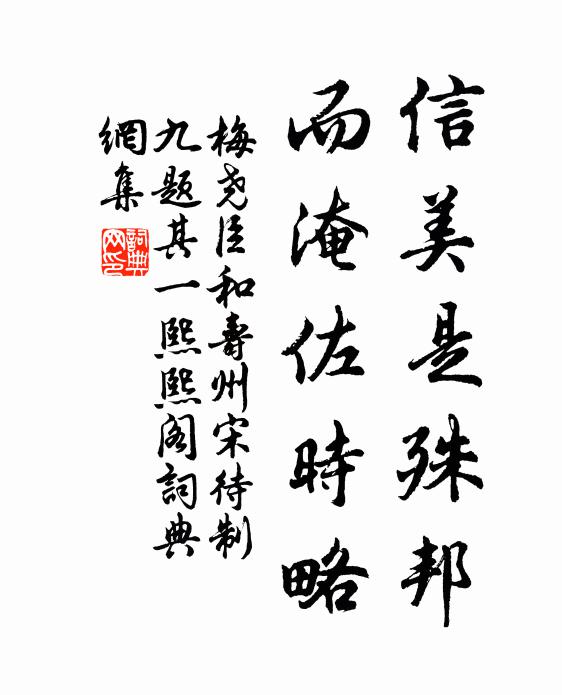 信美是殊邦
而淹佐時略
梅尧臣和壽州宋待制
九题其一熙熙阁詞典
網集
詞典
网印